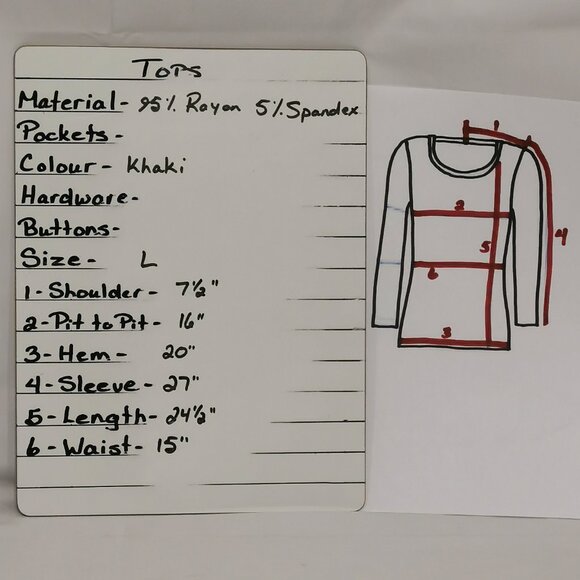 Tops
Material - 95% Rayon 5% Spandex
Pockets -
Colour - Khaki
Hardware -
Buttons -
Size - L
1 - Shoulder - 7½"
2 - Pit to Pit - 16"
3 - Hem - 20"
4 - Sleeve - 27"
5 - Length - 24½"
6 - Waist - 15"
1
2
4
5
6
3